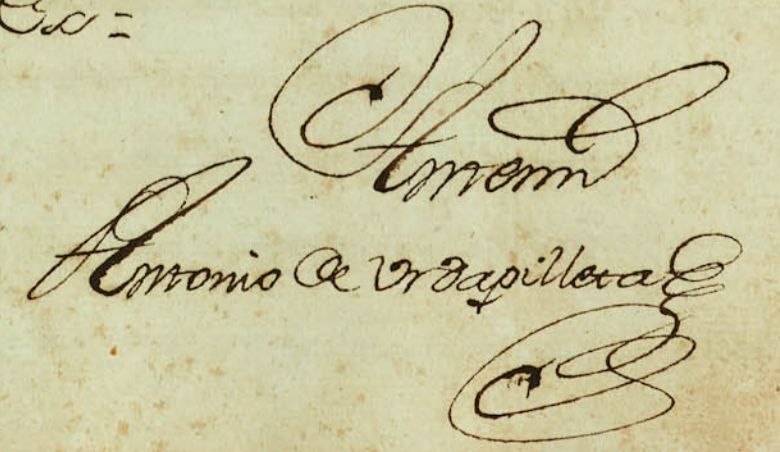 Antemi
Antonio de Urdapilleta